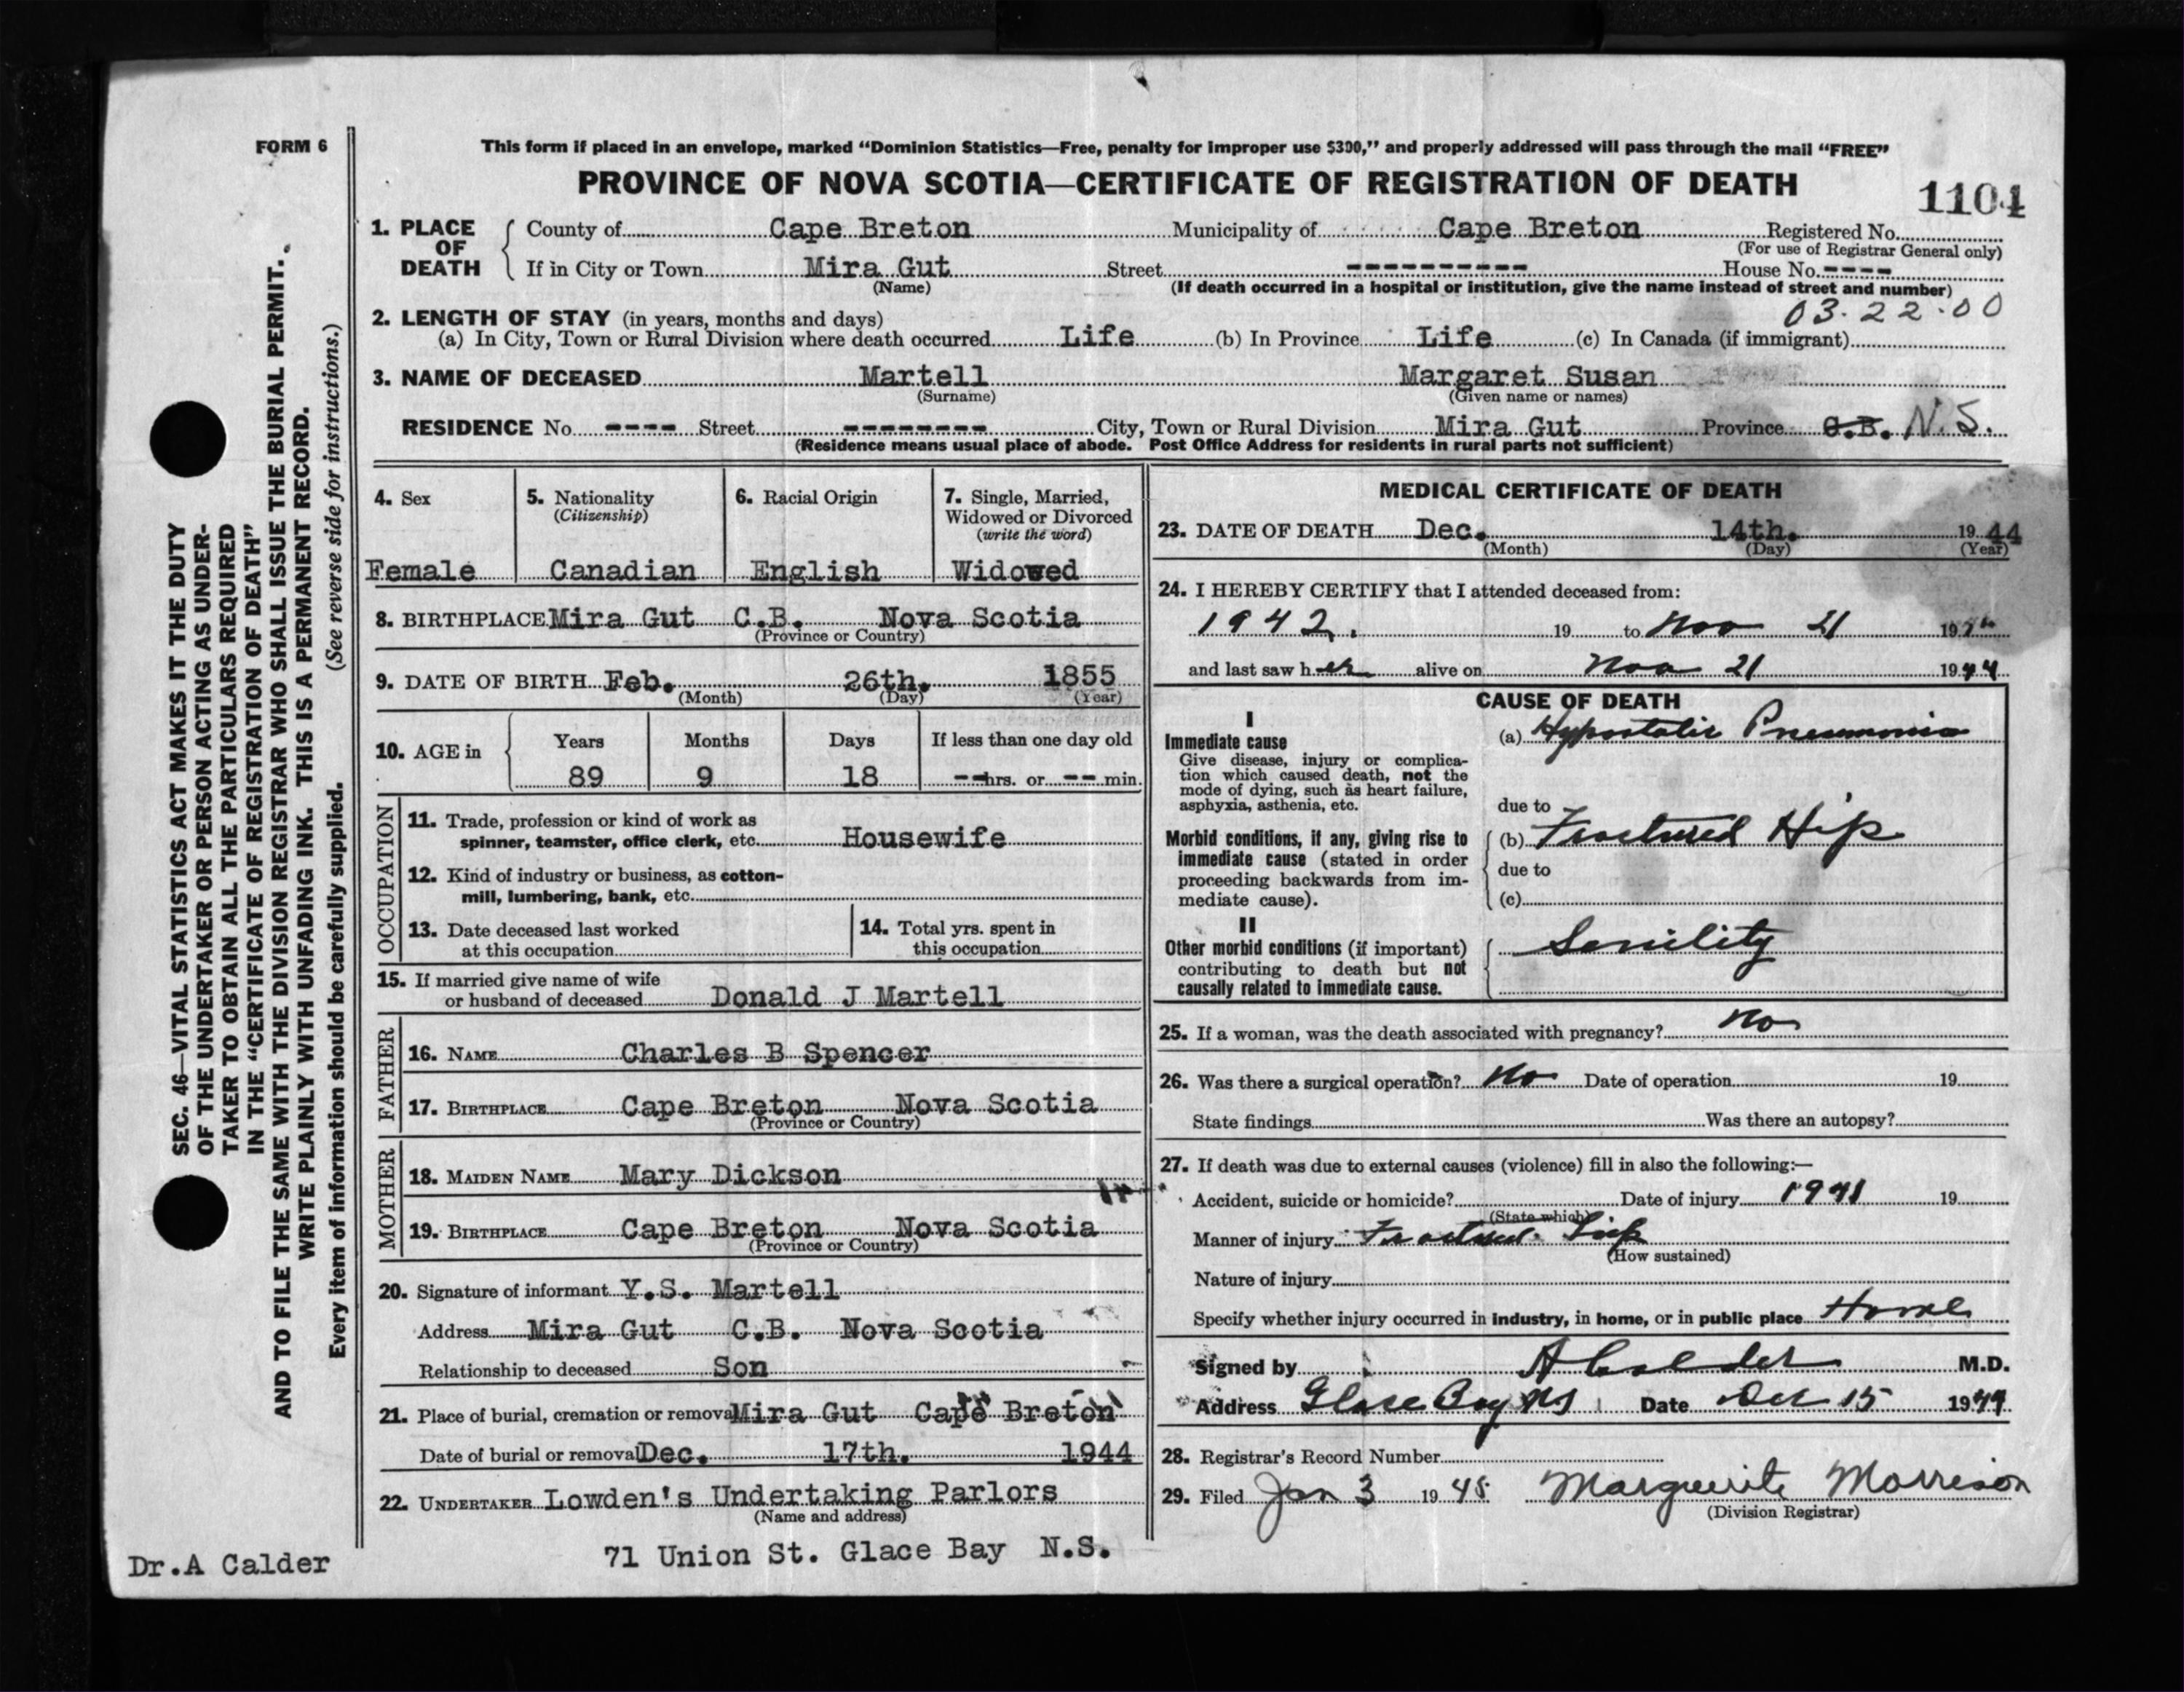 FORM 6
This form if placed in an envelope, marked “Dominion Statistics—Free, penalty for improper use $300,” and properly addressed will pass through the mail “FREE”
PROVINCE OF NOVA SCOTIA—CERTIFICATE OF REGISTRATION OF DEATH
1104
1. PLACE OF DEATH County of Cape Breton Municipality of Cape Breton Registered No.
(For use of Registrar General only)
If in City or Town Mira Gut Street ---------- House No. ----
(Name) (If death occurred in a hospital or institution, give the name instead of street and number)
03.22.00
2. LENGTH OF STAY (in years, months and days)
(a) In City, Town or Rural Division where death occurred Life (b) In Province Life (c) In Canada (if immigrant)
3. NAME OF DECEASED Martell Margaret Susan
(Surname) (Given name or names)
RESIDENCE No. ---- Street -------- City, Town or Rural Division Mira Gut Province C.B. N.S.
(Residence means usual place of abode. Post Office Address for residents in rural parts not sufficient)
4. Sex
Female
5. Nationality
(Citizenship)
Canadian
6. Racial Origin
English
7. Single, Married,
Widowed or Divorced
(write the word)
Widowed
8. BIRTHPLACE Mira Gut C.B. Nova Scotia
(Province or Country)
9. DATE OF BIRTH Feb. 26th. 1855
(Month) (Day) (Year)
10. AGE in
Years Months Days If less than one day old
89 9 18 -- hrs. or -- min.
OCCUPATION
11. Trade, profession or kind of work as
spinner, teamster, office clerk, etc. Housewife
12. Kind of industry or business, as cotton-
mill, lumbering, bank, etc.
13. Date deceased last worked
at this occupation
14. Total yrs. spent in
this occupation
15. If married give name of wife
or husband of deceased Donald J Martell
FATHER
16. NAME Charles B Spencer
17. BIRTHPLACE Cape Breton Nova Scotia
(Province or Country)
MOTHER
18. MAIDEN NAME Mary Dickson
19. BIRTHPLACE Cape Breton Nova Scotia
(Province or Country)
20. Signature of informant Y.S. Martell
Address Mira Gut C.B. Nova Scotia
Relationship to deceased Son
21. Place of burial, cremation or removal Mira Gut Cape Breton
Date of burial or removal Dec. 17th. 1944
22. UNDERTAKER Lowden's Undertaking Parlors
(Name and address)
71 Union St. Glace Bay N.S.
MEDICAL CERTIFICATE OF DEATH
23. DATE OF DEATH Dec. 14th. 1944
(Month) (Day) (Year)
24. I HEREBY CERTIFY that I attended deceased from:
1942. 19 to Nov 21 19
and last saw her alive on Nov 21 1944
CAUSE OF DEATH
I
Immediate cause
Give disease, injury or complica-
tion which caused death, not the
mode of dying, such as heart failure,
asphyxia, asthenia, etc.
(a) Hypostatic Pneumonia
due to
Morbid conditions, if any, giving rise to
immediate cause (stated in order
proceeding backwards from im-
mediate cause).
(b) Fractured Hip
due to
(c)
II
Other morbid conditions (if important)
contributing to death but not
causally related to immediate cause.
Senility
25. If a woman, was the death associated with pregnancy? No
26. Was there a surgical operation? No Date of operation 19
State findings Was there an autopsy?
27. If death was due to external causes (violence) fill in also the following:—
Accident, suicide or homicide? Date of injury 1941 19
(State which)
Manner of injury Fractured Hip
(How sustained)
Nature of injury
Specify whether injury occurred in industry, in home, or in public place Home
Signed by A Calder M.D.
Address Glace Bay NS Date Dec 15 1944
28. Registrar's Record Number
29. Filed Jan 3 1945 Marguerite Morrison
(Division Registrar)
SEC. 46—VITAL STATISTICS ACT MAKES IT THE DUTY
OF THE UNDERTAKER OR PERSON ACTING AS UNDER-
TAKER TO OBTAIN ALL THE PARTICULARS REQUIRED
IN THE “CERTIFICATE OF REGISTRATION OF DEATH”
AND TO FILE THE SAME WITH THE DIVISION REGISTRAR WHO SHALL ISSUE THE BURIAL PERMIT.
WRITE PLAINLY WITH UNFADING INK. THIS IS A PERMANENT RECORD.
Every item of information should be carefully supplied. (See reverse side for instructions.)
Dr.A Calder